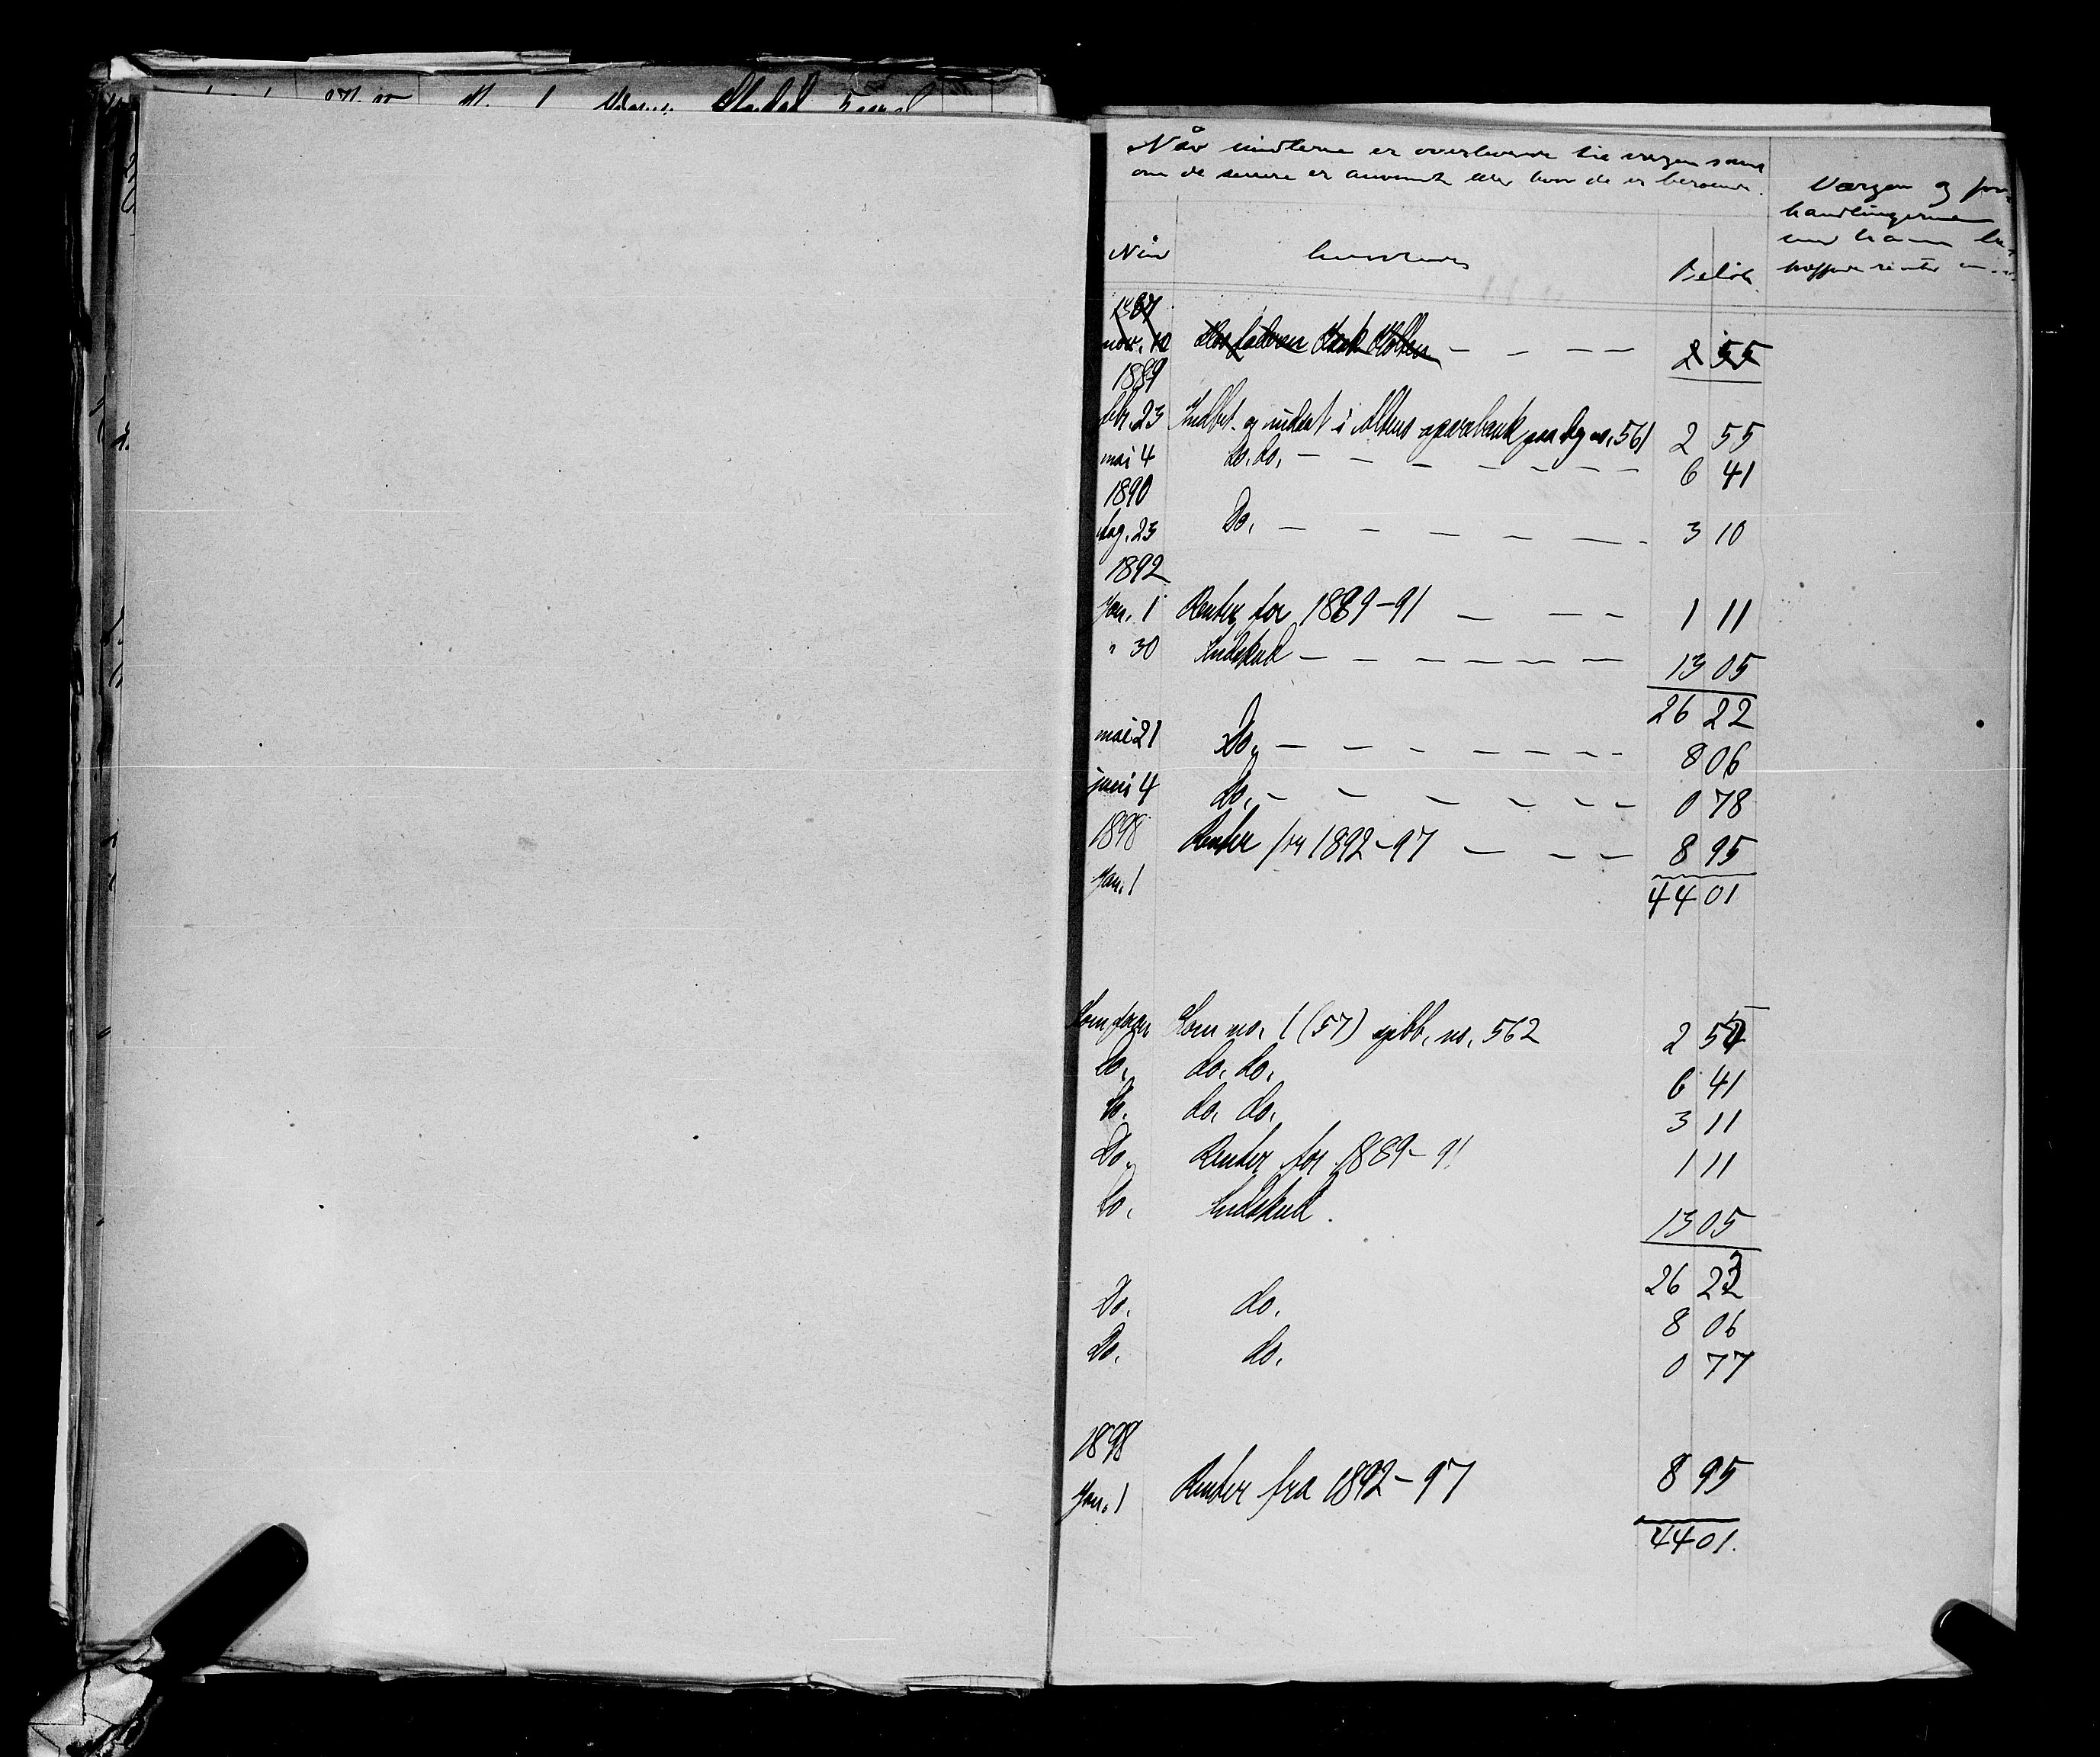 Når midlerne er overleverede til vergen samt
om de senere er anvendte eller hvor de er beroende.
Vergen og for-
handlingerne
med ham
Når
Beløb
1887
nov. 12 Hos faderen — — — — 2 55
1889
febr. 23 Indbet. og indsat i Altens sparebank paa bog no. 561 2 55
mai 4 do. do. — — — — — — — 6 41
1890
aug. 23 Do. — — — — — — 3 10
1892
Jan. 1 Renter for 1889-91 — — — 1 11
" 30 Indskud — — — — — — 13 05
26 22
mai 21 Do. — — — — — — — 8 06
juni 4 do. — — — — — — 0 78
1898 Renter fra 1892-97 — — — 8 95
Jan. 1
44 01
Som foran Som no. 1 (57) spbb. no. 562 2 55
Do. do. do. 6 41
Do. do. do. 3 11
Do. Renter for 1889-91 1 11
Do. Indskud. 13 05
26 23
Do. do. 8 06
Do. do. 0 77
1898
Jan. 1 Renter fra 1892-97 8 95
44 01.